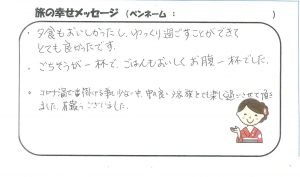 旅の幸せメッセージ (ペンネーム： )
・夕食もおいしかったし、ゆっくり過ごすことができて
とても良かったです。
・ごちそうが一杯で、ごはんもおいしくお腹一杯でした。
・コロナ渦で出掛ける事も少ない中、中の良い家族とても楽しく過ごさせて頂き
ました。有難うございました。